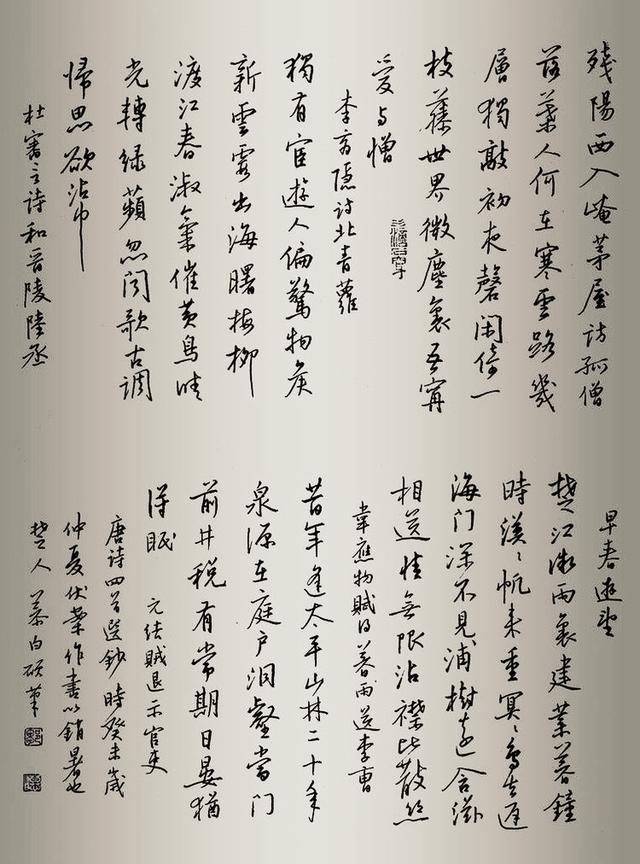 殘陽西入崦茅屋訪孤僧
落葉人何在寒雲路幾
層獨敲初夜磬閑倚一
枝藤世界微塵裏吾甯
愛与憎
李商隱詩北青蘿
獨有宦遊人偏驚物候
新雲霞出海曙梅柳
渡江春淑氣催黃鳥晴
光轉綠蘋忽聞歌古調
歸思欲沾巾
杜審言詩和晉陵陸丞
早春遊望
楚江微雨裏建業暮鐘
時漠〻帆來重冥〻鳥去遲
海門深不見浦樹遠含滋
相送情無限沾襟比散絲
韋應物賦得暮雨送李曹
昔年逢太平山林二十年
泉源在庭戶洞壑當門
前井稅有常期日晏猶
得眠 元結賊退示官吏
唐詩四首選鈔 時癸未歲
仲夏伏案作書以銷暑也
楚人慕白